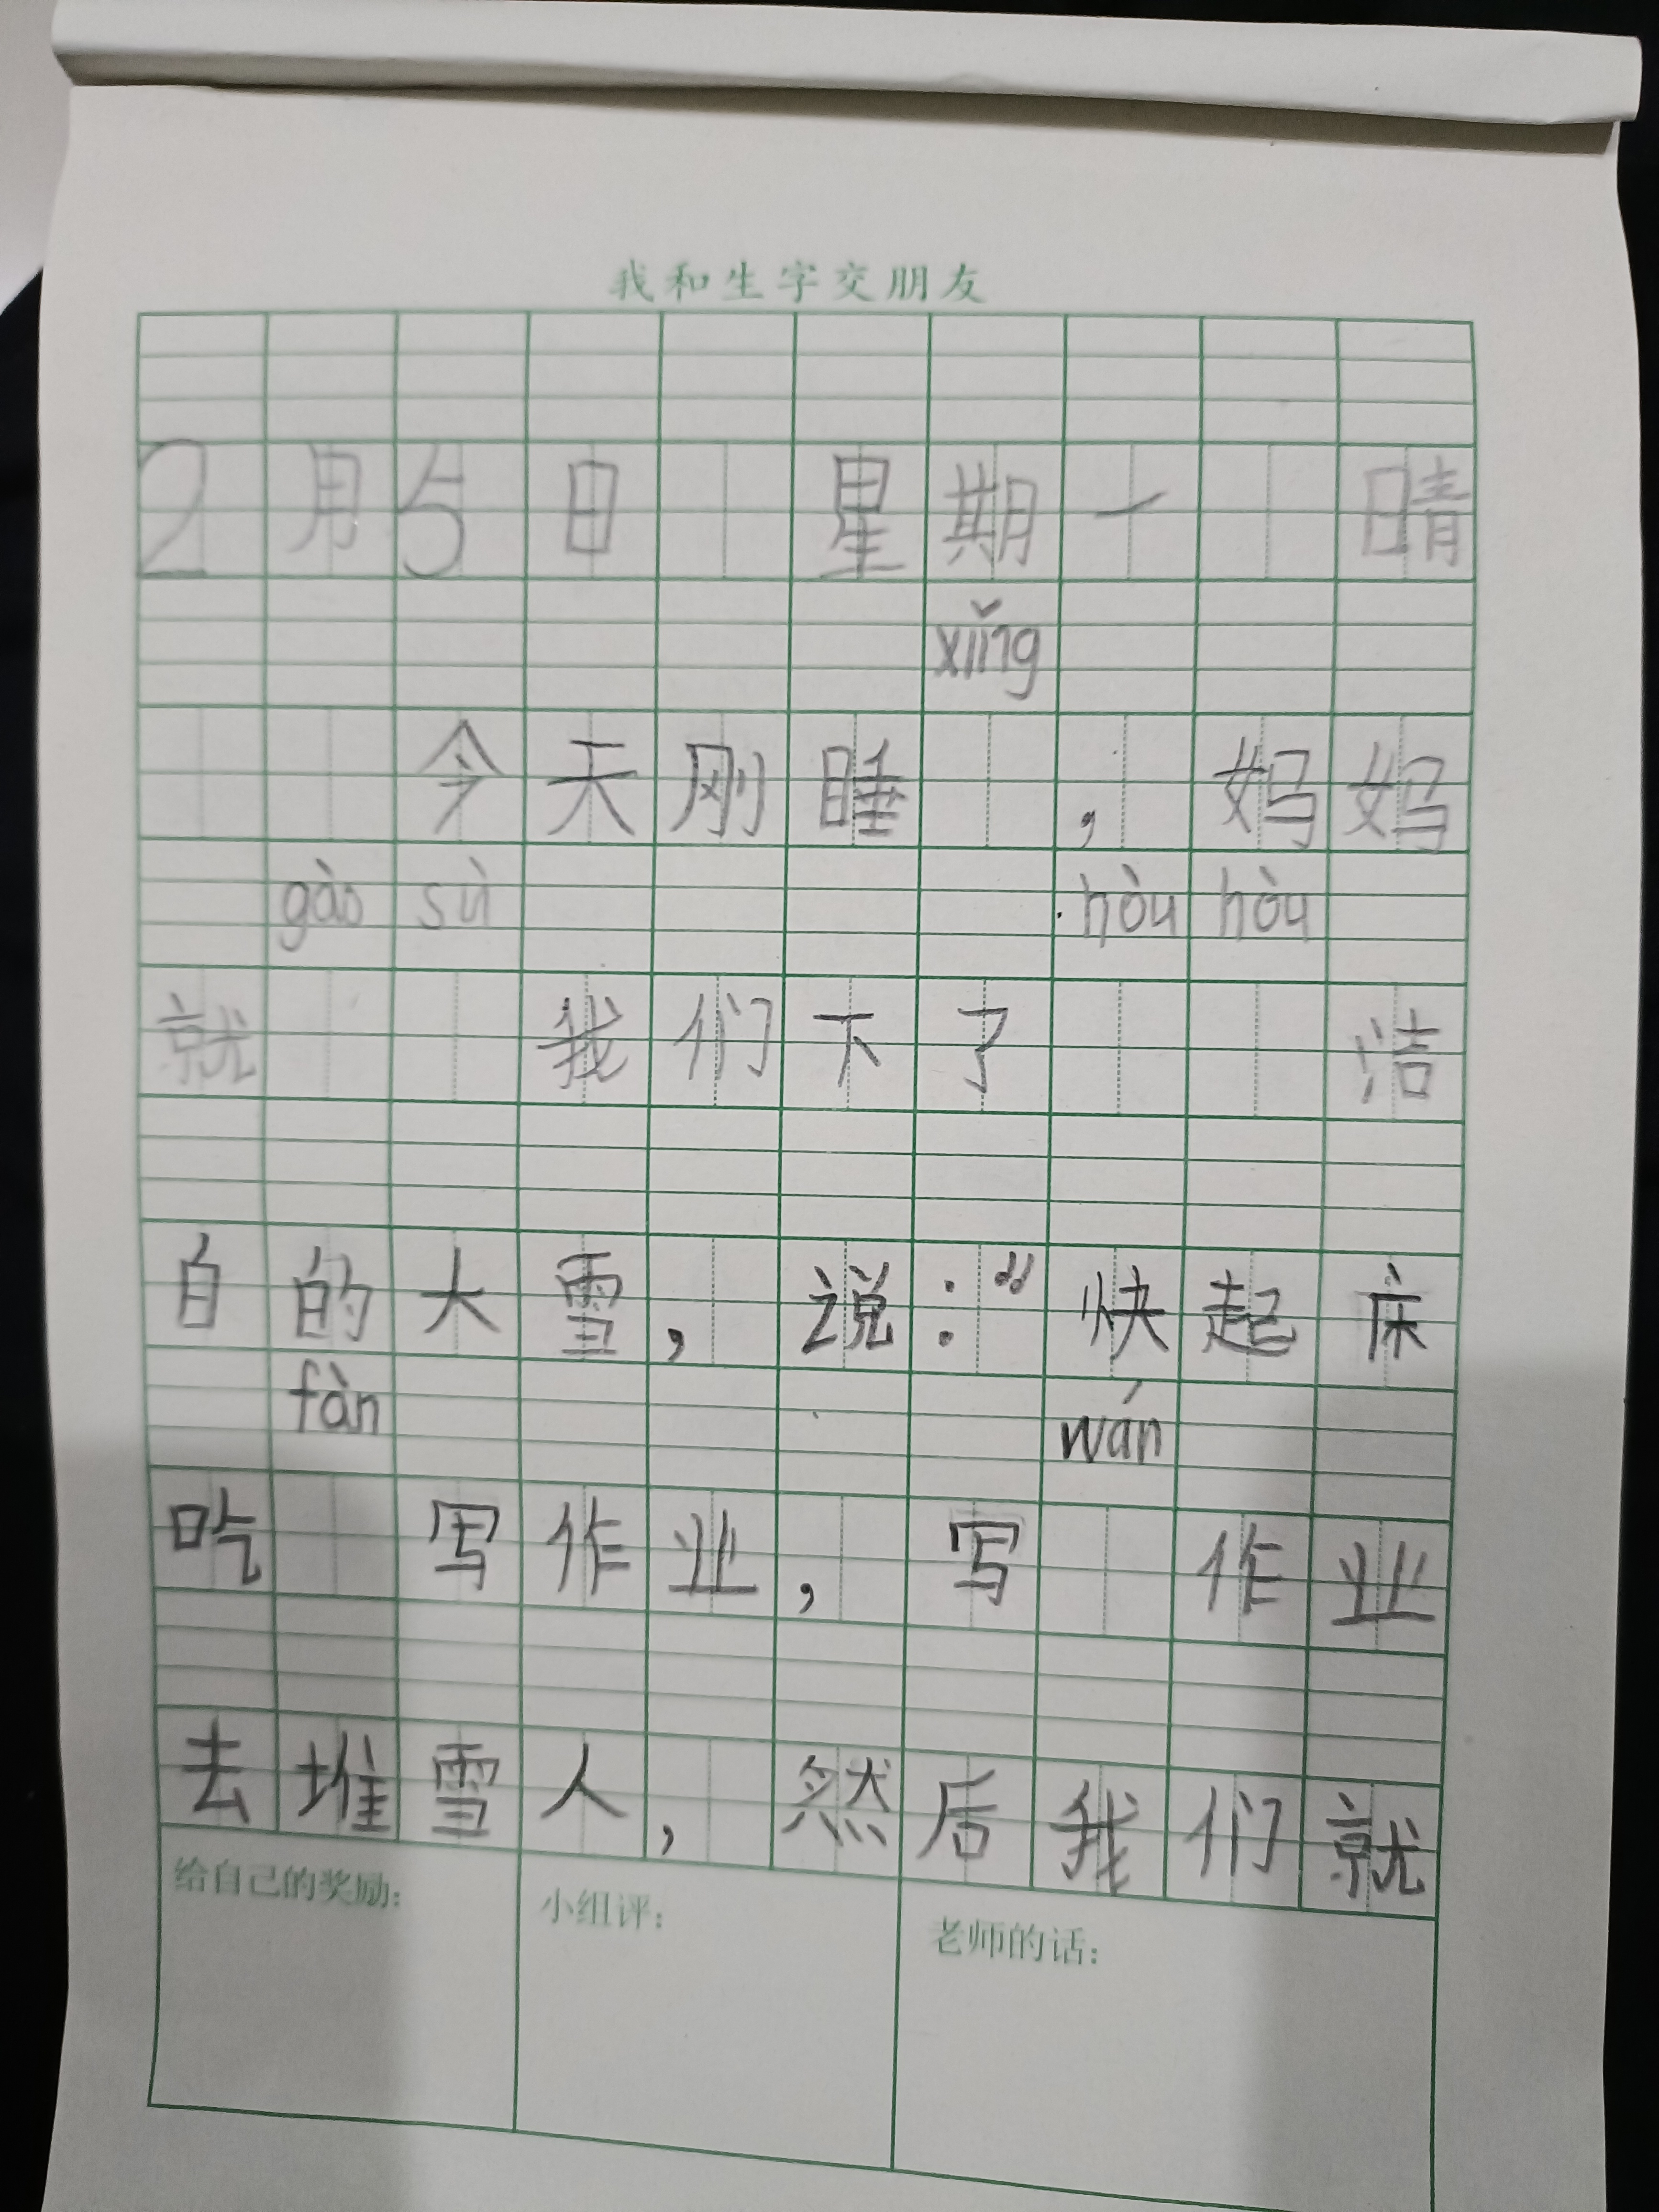 我和生字交朋友
2月5日 星期一 晴
xǐng
今天刚睡 ，妈妈
gào sù hòu hòu
就 我们下了 洁
白的大雪，说：“快起床
fàn wán
吃 写作业，写 作业
去堆雪人，然后我们就
给自己的奖励： 小组评： 老师的话：